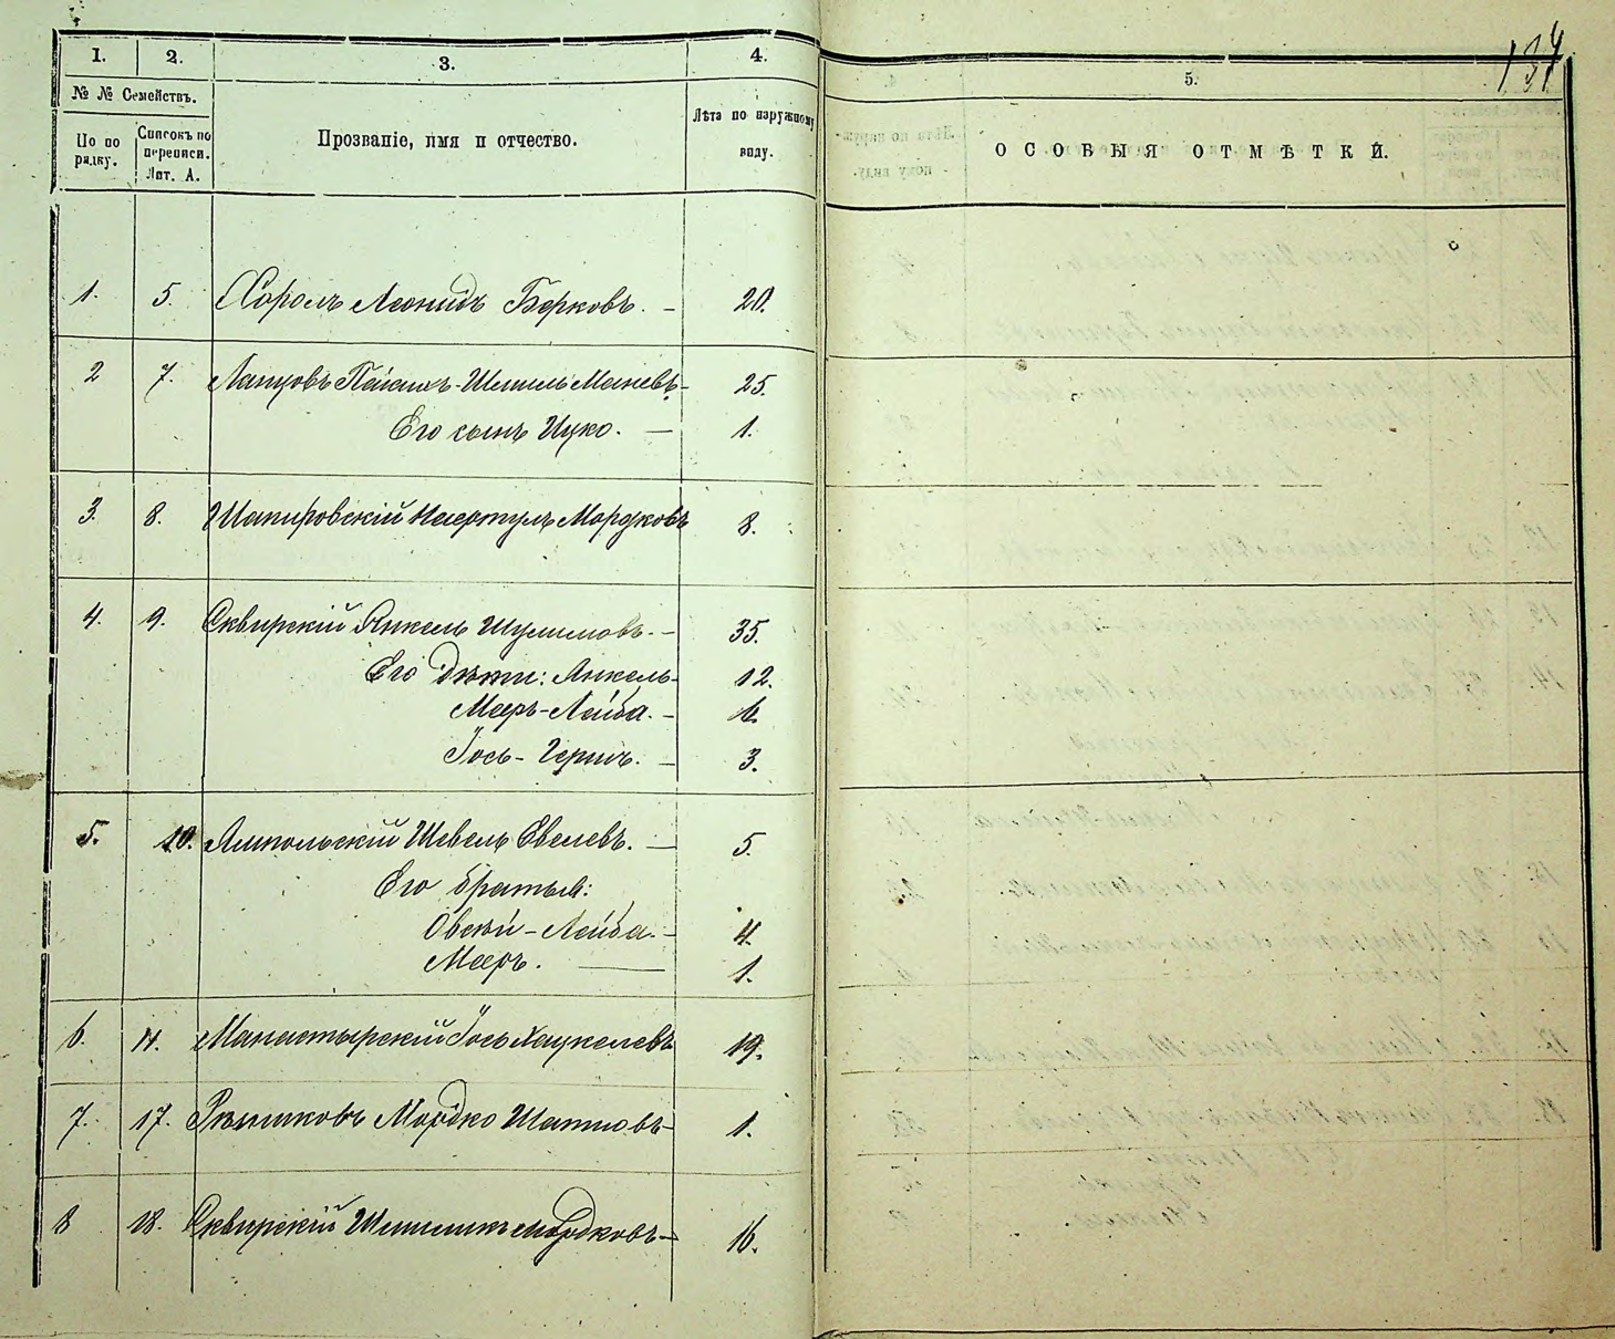 1. 2. 3. 4.
№ № Семействъ.
По по рядку. Списокъ по переписи. Лит. А. Прозваніе, имя и отчество. Лѣта по наружному виду.
1. 5. Хоролъ Леонидъ Берковъ. — 20.
2 7. Шмиль Маневъ — 25.
Его сынъ Ицко. — 1.
3. 8. Шапировскій Мордковъ 8.
4. 9. Сквирскій Янкель Шулимовъ. — 35.
Его дѣти: Янкель — 12.
Мееръ-Лейба. — 6.
Іось-Гершъ. — 3.
5. 10. Ямпольскій Шевель Евелевъ. — 5.
Его братья:
Овсѣй-Лейба. — 4.
Мееръ. — 1.
6. 11. Манастырскій Іось Хацкелевъ 19.
7. 17. Рѣзниковъ Мордко — 1.
8 18. Сквирскій Мордковъ — 16.
134
5.
ОСОБЫЯ ОТМѢТКИ.